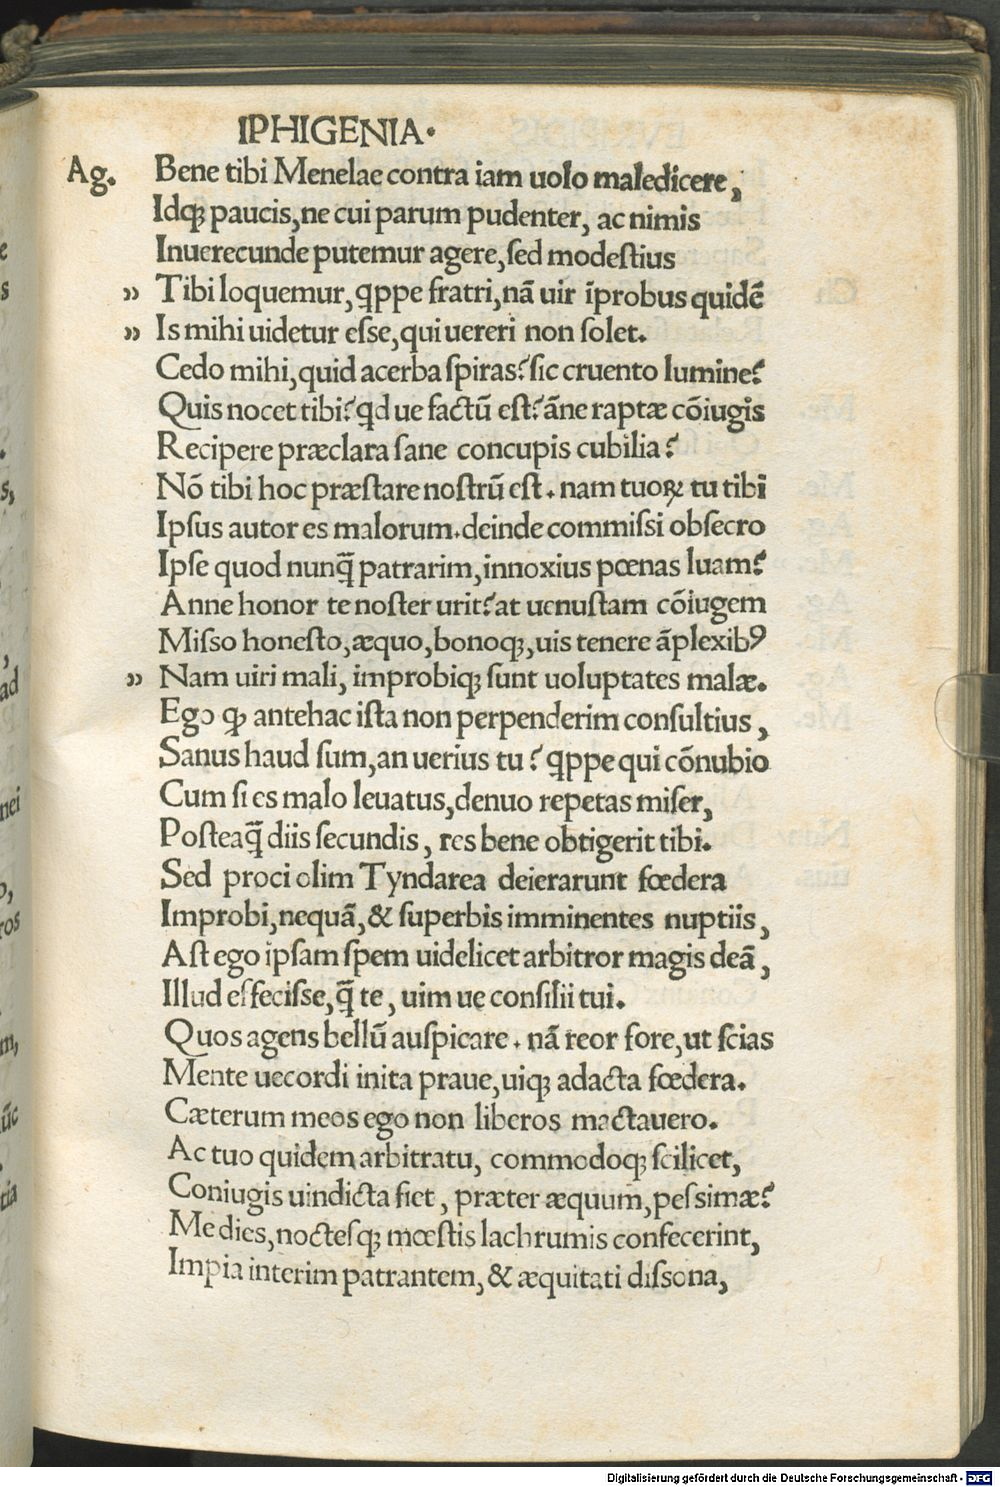 IPHIGENIA.
Ag. Bene tibi Menelae contra iam uolo maledicere,
Idq; paucis, ne cui parum pudenter, ac nimis
Inuerecunde putemur agere, ſed modeſtius
„ Tibi loquemur, q̈ppe fratri, nã uir ĩprobus quidẽ
„ Is mihi uidetur eſſe, qui uereri non ſolet.
Cedo mihi, quid acerba ſpiras? ſic cruento lumine?
Quis nocet tibi? qd ue factũ eſt? ãne raptæ cõiugis
Recipere præclara ſane concupis cubilia?
Nõ tibi hoc præſtare noſtrũ eſt. nam tuoꝝ tu tibi
Ipſus autor es malorum. deinde commiſſi obſecro
Ipſe quod nunq̃ patrarim, innoxius pœnas luam?
Anne honor te noſter urit? at uenuſtam cõiugem
Miſſo honeſto, æquo, bonoq;, uis tenere ãplexibꝰ
„ Nam uiri mali, improbiq; ſunt uoluptates malæ.
Ego ꝙ antehac iſta non perpenderim conſultius,
Sanus haud ſum, an uerius tu? q̈ppe qui cõnubio
Cum ſi es malo leuatus, denuo repetas miſer,
Poſteaq̃ diis ſecundis, res bene obtigerit tibi.
Sed proci olim Tyndarea deierarunt fœdera
Improbi, nequã, & ſuperbis imminentes nuptiis,
Aſt ego ipſam ſpem uidelicet arbitror magis deã,
Illud effeciſſe, q̃ te, uim ue conſilii tui.
Quos agens bellũ auſpicare. nã reor fore, ut ſcias
Mente uecordi inita praue, uiq; adacta fœdera.
Cæterum meos ego non liberos mactauero.
Ac tuo quidem arbitratu, commodoq; ſcilicet,
Coniugis uindicta fiet, præter æquum, peſſimæ?
Me dies, nocteſq; mœſtis lachrumis confecerint,
Impia interim patrantem, & æquitati diſſona,
Digitalisierung gefördert durch die Deutsche Forschungsgemeinschaft - DFG